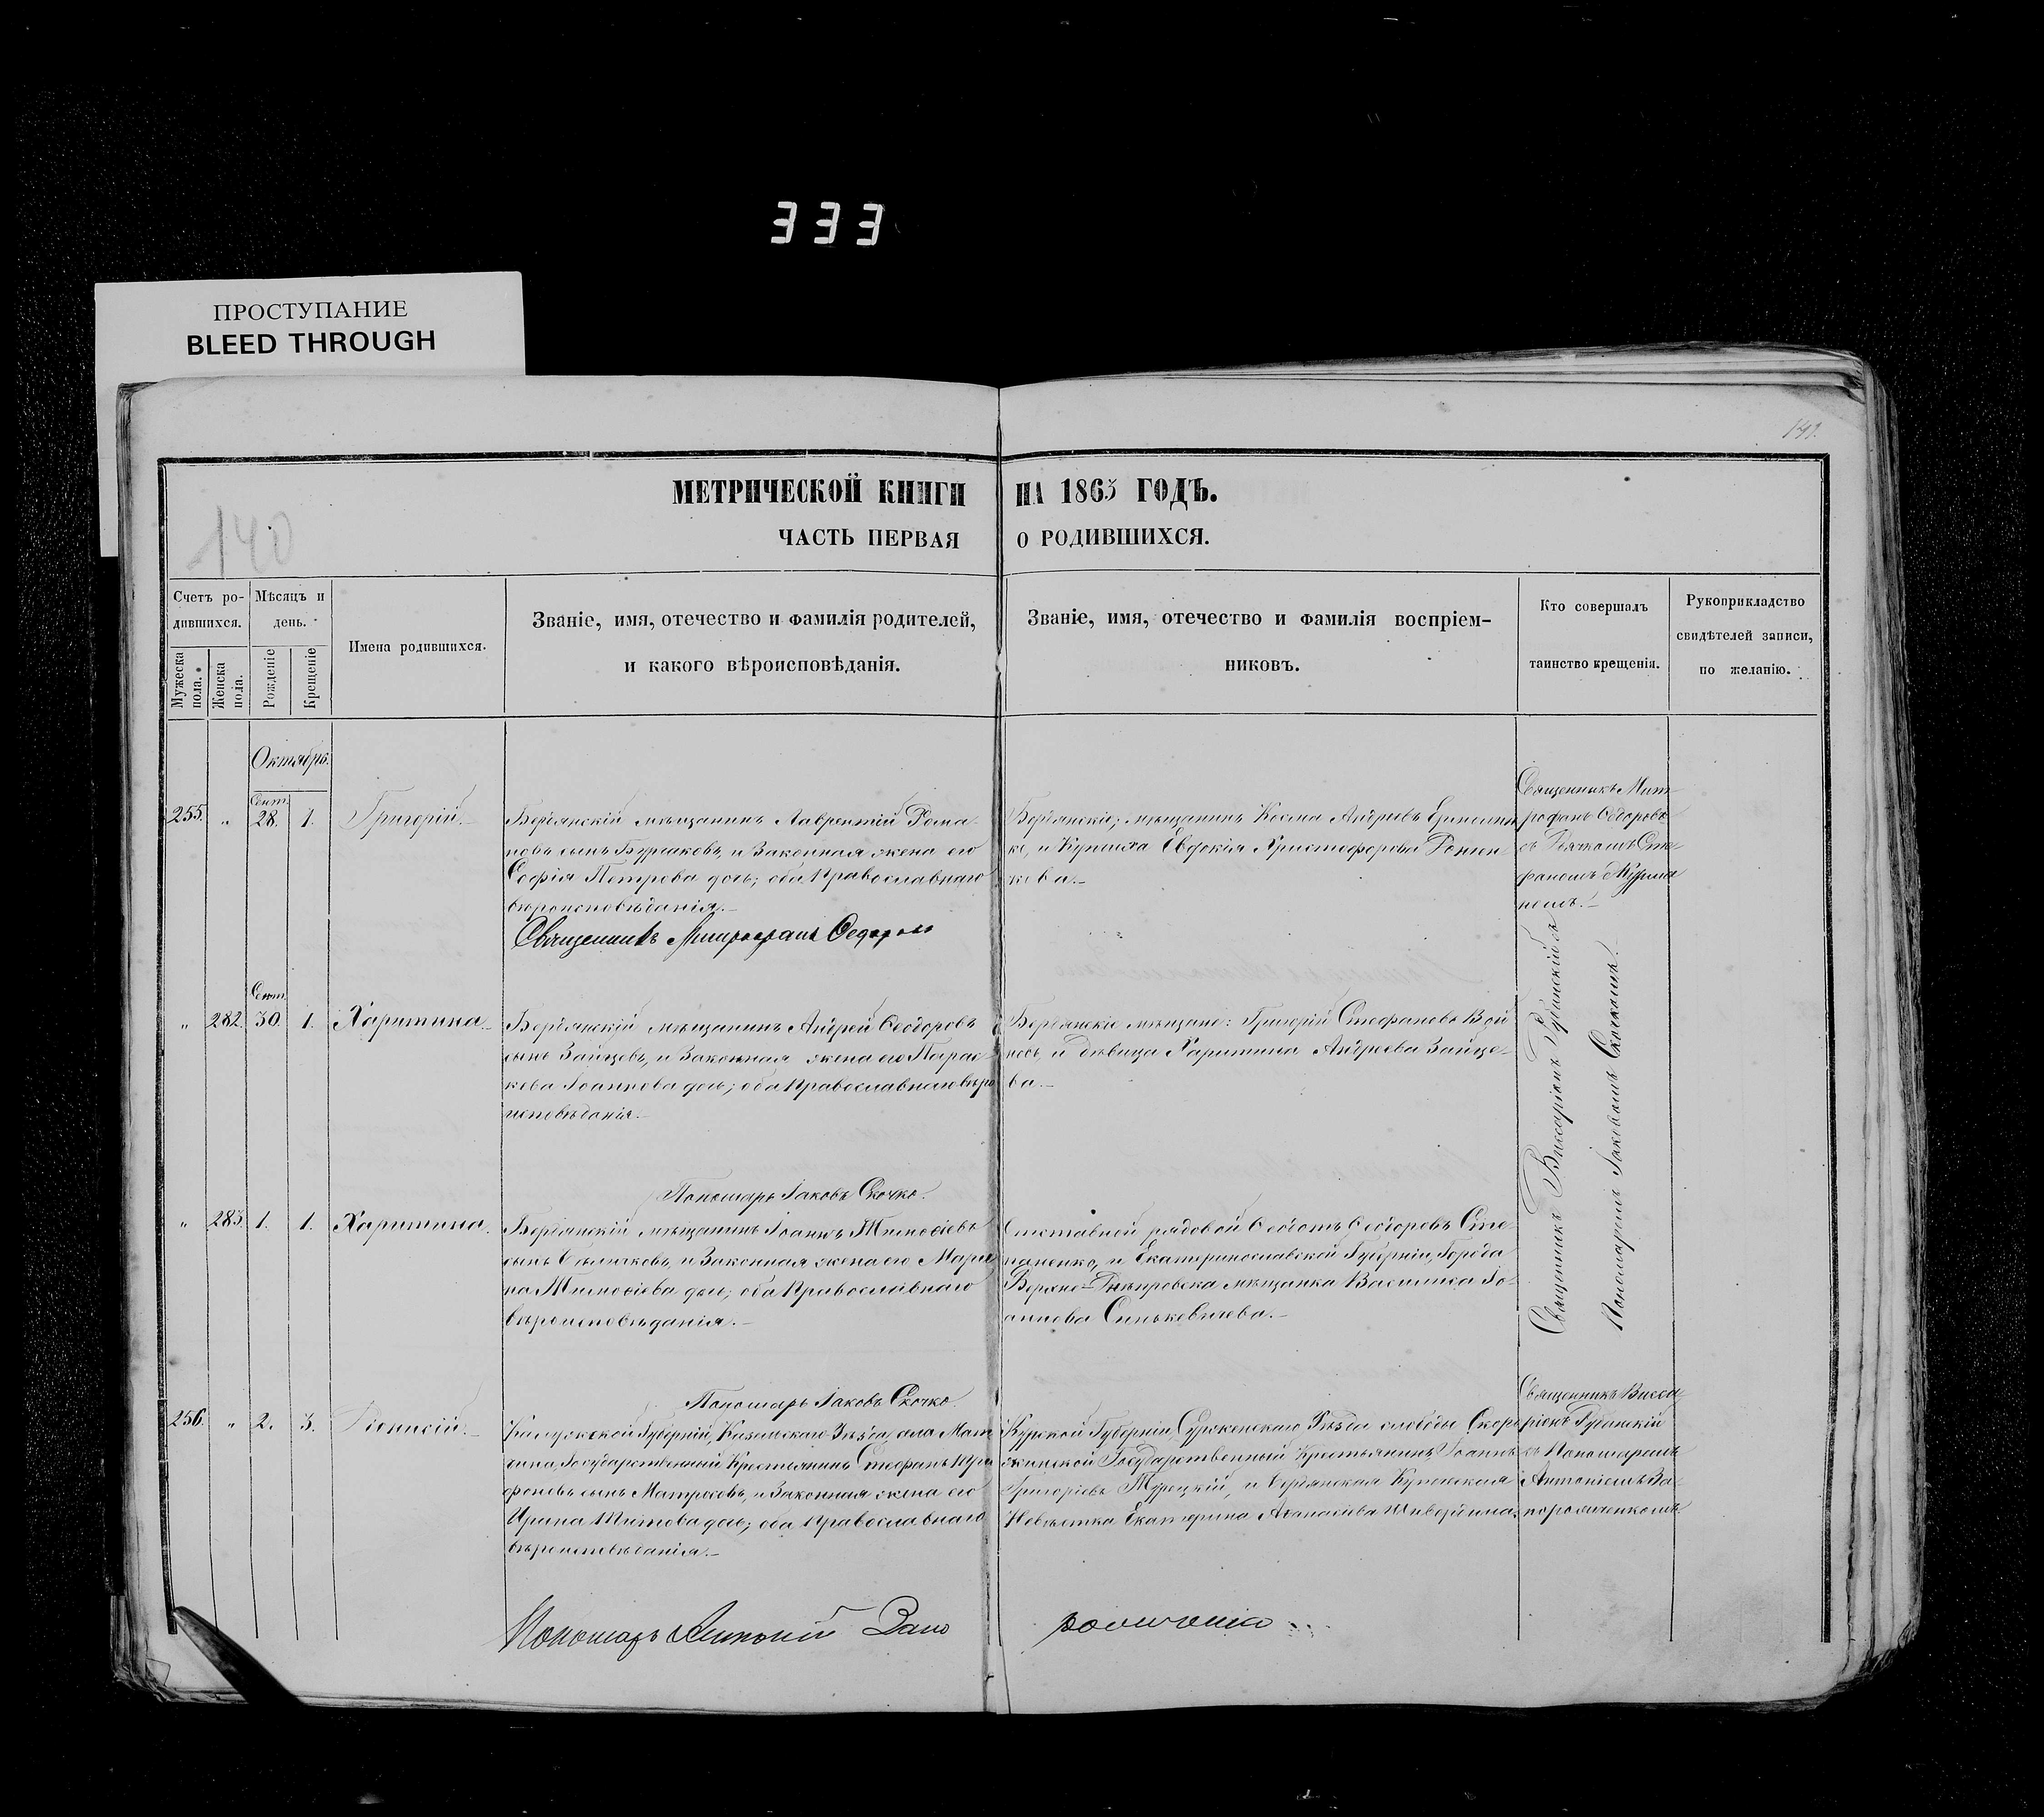 333
ПРОСТУПАНИЕ
BLEED THROUGH
141.
140
МЕТРИЧЕСКОЙ КНИГИ НА 1863 ГОДЪ.
ЧАСТЬ ПЕРВАЯ О РОДИВШИХСЯ.
Счетъ ро-
дившихся.
Мужеска пола.
Женска пола.
Мѣсяцъ и
день.
Рожденіе
Крещеніе
Имена родившихся.
Званіе, имя, отечество и фамилія родителей,
и какого вѣроисповѣданія.
Званіе, имя, отечество и фамилія воспріем-
никовъ.
Кто совершалъ
таинство крещенія.
Рукоприкладство
свидѣтелей записи,
по желанію.
Октябрь.
255. " Сент. 28. 1. Григорій.
Бердянскій мѣщанинъ Лаврентій Рома-
новъ сынъ Бурлаковъ, и Законная жена его
Софія Петрова дочь; оба Православнаго
вѣроисповѣданія.
Священникъ Митрофанъ Федоровъ
Бердянскіе; мѣщанинъ Косма Андреевъ
и Купчиха Евдокія Христофорова
Священникъ Мит-
рофанъ Федоровъ
съ Дьякономъ Сте-
фаномъ
" 282. Сент. 30. 1. Харитина.
Бердянскій мѣщанинъ Андрей Ѳеодоровъ
сынъ Зайцевъ, и Законная жена его Парас-
кева Іоаннова дочь; оба Православнаго вѣро
исповѣданія.
Пономарь Іаковъ Скочко.
Бердянскіе мѣщане: Григорій Стефановъ Вой
и дѣвица Харитина Андреева Зайце-
ва.
Священникъ Виссаріонъ съ
Пономаремъ Іаковомъ Скочкомъ.
" 283. 1. 1. Харитина.
Бердянскій мѣщанинъ Іоаннъ Тимоѳіевъ
сынъ и Законная жена его Мари
на Тимоѳіева дочь; оба Православнаго
вѣроисповѣданія.
Пономарь Іаковъ Скочко.
Отставной рядовой Ѳедотъ Ѳеодоровъ Сте-
паненко, и Екатеринославской Губерніи, Города
Верхне-Днѣпровска мѣщанка Василиса Іо-
аннова Синькевичева.
256. " 2. 3. Діонисій.
Калужской Губерніи, Уѣзда, села
Государственный Крестьянинъ Стефанъ
сынъ Матросовъ, и Законная жена его
Ирина Титова дочь; оба Православнаго
вѣроисповѣданія.
Курской Губерніи, Суджанскаго Уѣзда слободы
Государственный Крестьянинъ Іоаннъ
Григоріевъ Турецкій, и Бердянская Купеческая
Невѣстка Екатерина Аѳанасіева
Священникъ Висса-
ріонъ
съ Пономаремъ
Антоніемъ За-
порожченкомъ.
Пономарь Антоній Запо рожченко